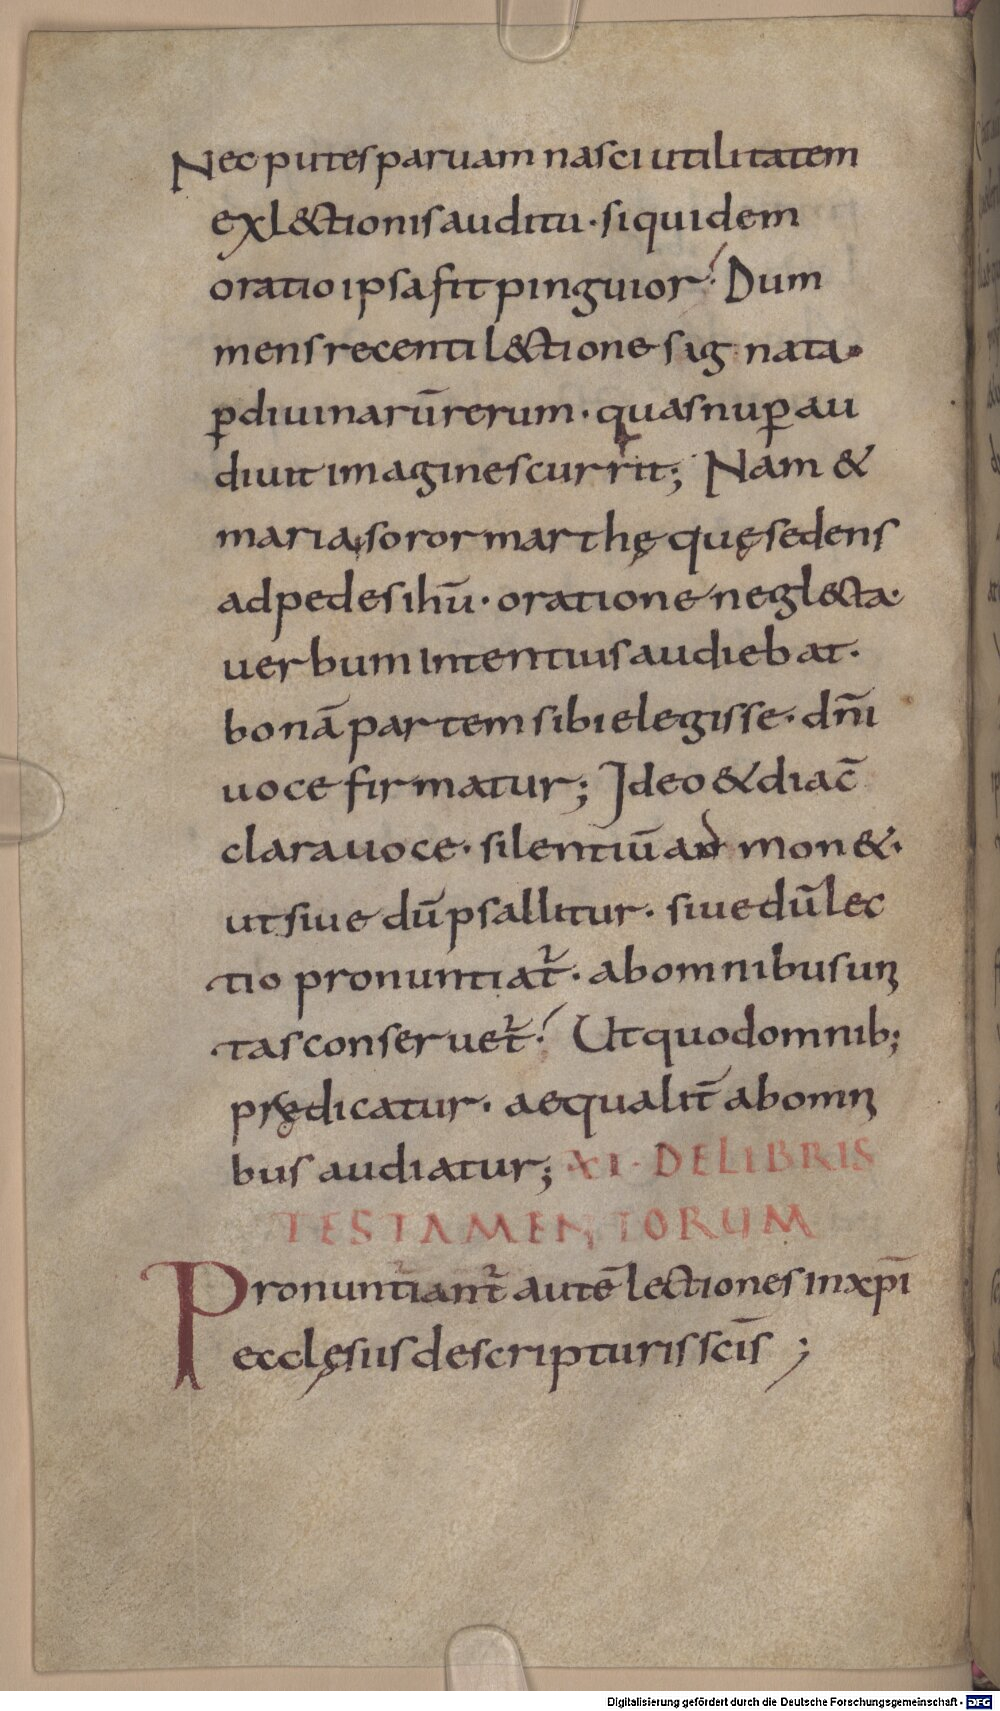 Nec putes paruam nasci utilitatem
ex l&ctionis auditu · siquidem
oratio ipsa fit pinguior · Dum
mens recenti l&ctione sag nata ·
p̲ diuinarū rerum · quas nup̲ au
diuit imagines currit; Nam &
maria soror marthę quę sedens
ad pedes ihū · oratione negl&cta ·
uerbum intentius audiebat ·
bonā partem sibi elegisse · dn̄i
uoce firmatur; Ideo & diac̄
clara uoce · silentiū ad mon& ·
ut siue dū psallitur · siue dū lec
tio pronuntiat᷑ · ab omnibus uni
tas conseruet᷑ · Ut quod omnib;
prędicatur · aequalit̄ ab omni
bus audiatur; XI · DE LIBRIS
TESTAMENTORUM
Pronuntiant᷑ autē lectiones in xp̄i
ecclęsiis de scripturis sc̄is ;
Digitalisierung gefördert durch die Deutsche Forschungsgemeinschaft - DFG